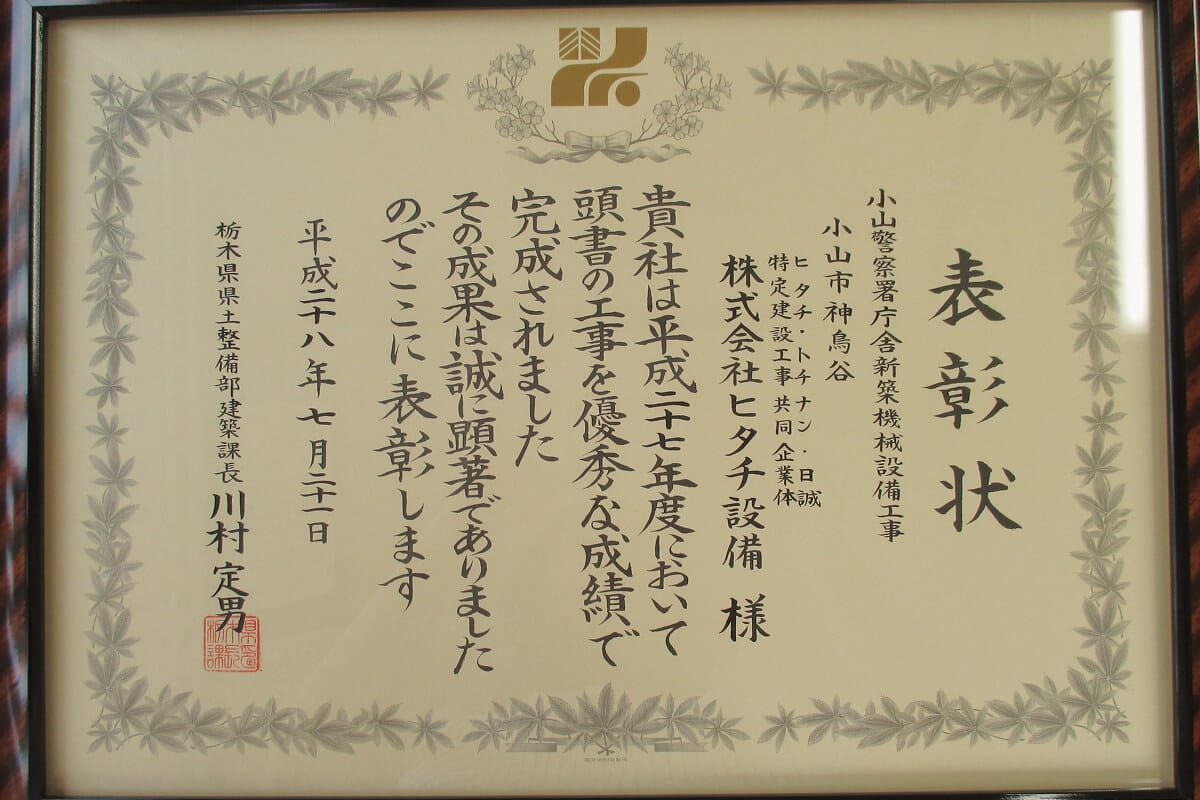 表彰状
小山警察署庁舎新築機械設備工事
小山市神鳥谷
ヒタチ・トチナン・日誠
特定建設工事共同企業体
株式会社ヒタチ設備 様
貴社は平成二十七年度において
頭書の工事を優秀な成績で
完成されました
その成果は誠に顕著でありました
のでここに表彰します
平成二十八年七月二十一日
栃木県県土整備部建築課長 川村定男